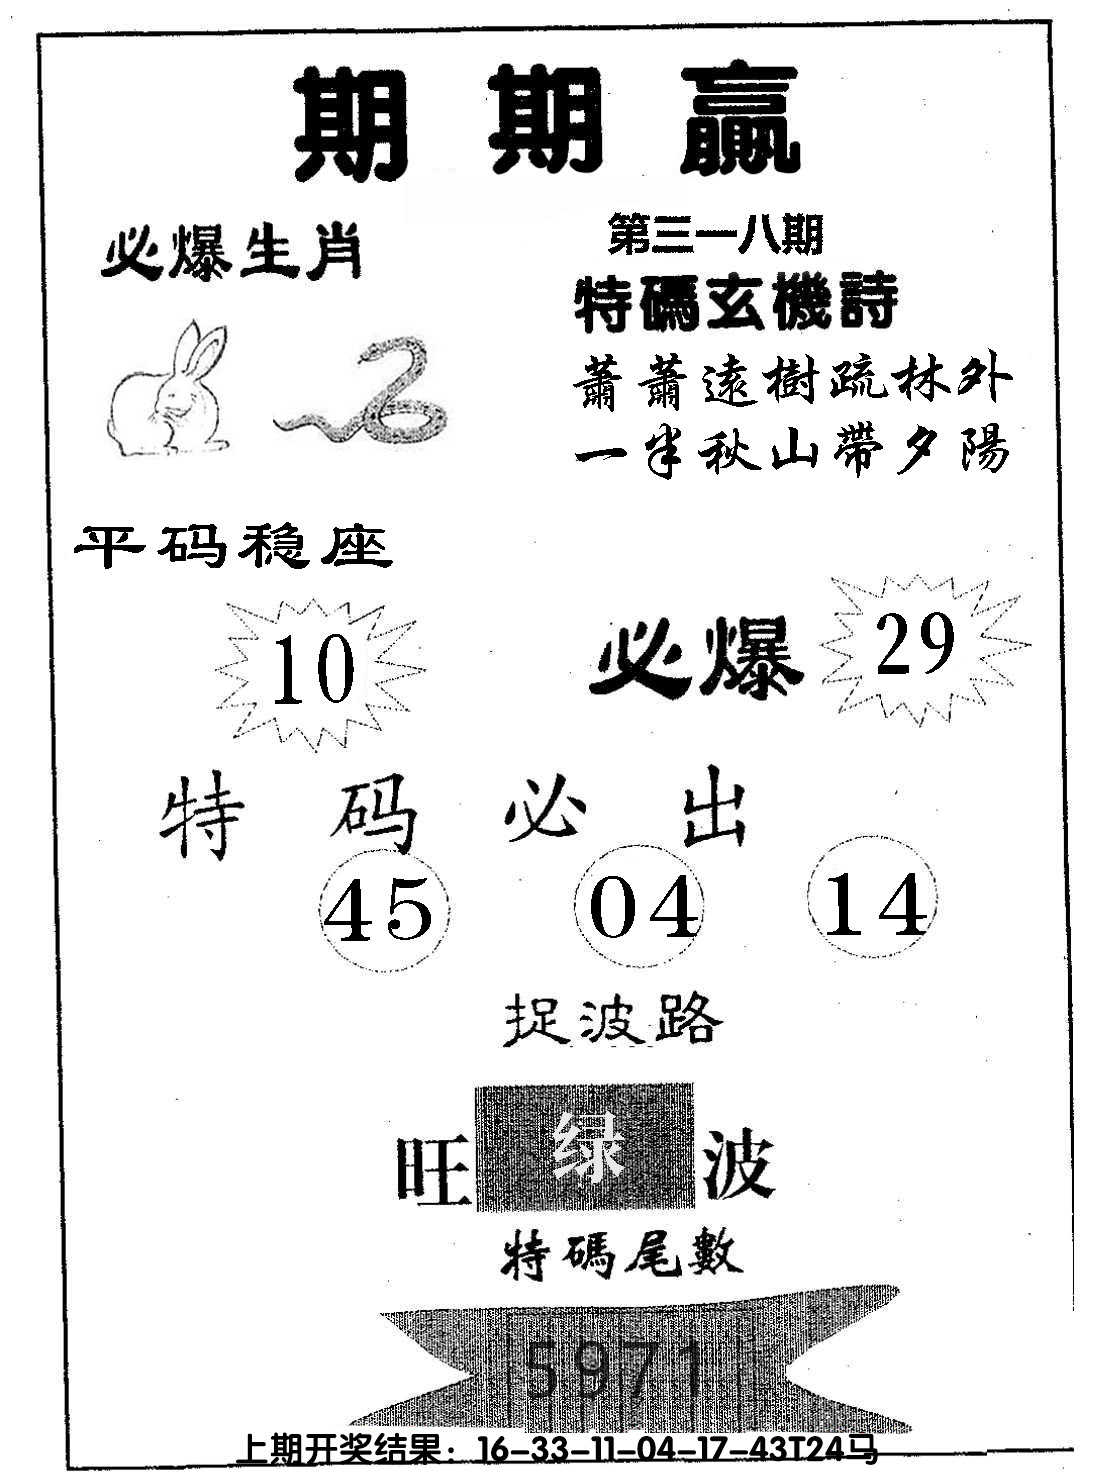 期期贏
必爆生肖
第三一八期
特碼玄機詩
蕭蕭遠樹疏林外
一半秋山帶夕陽
平码稳座
10
必爆
29
特码必出
45 04 14
捉波路
旺绿波
特碼尾數
5971
上期开奖结果：16-33-11-04-17-43T24马